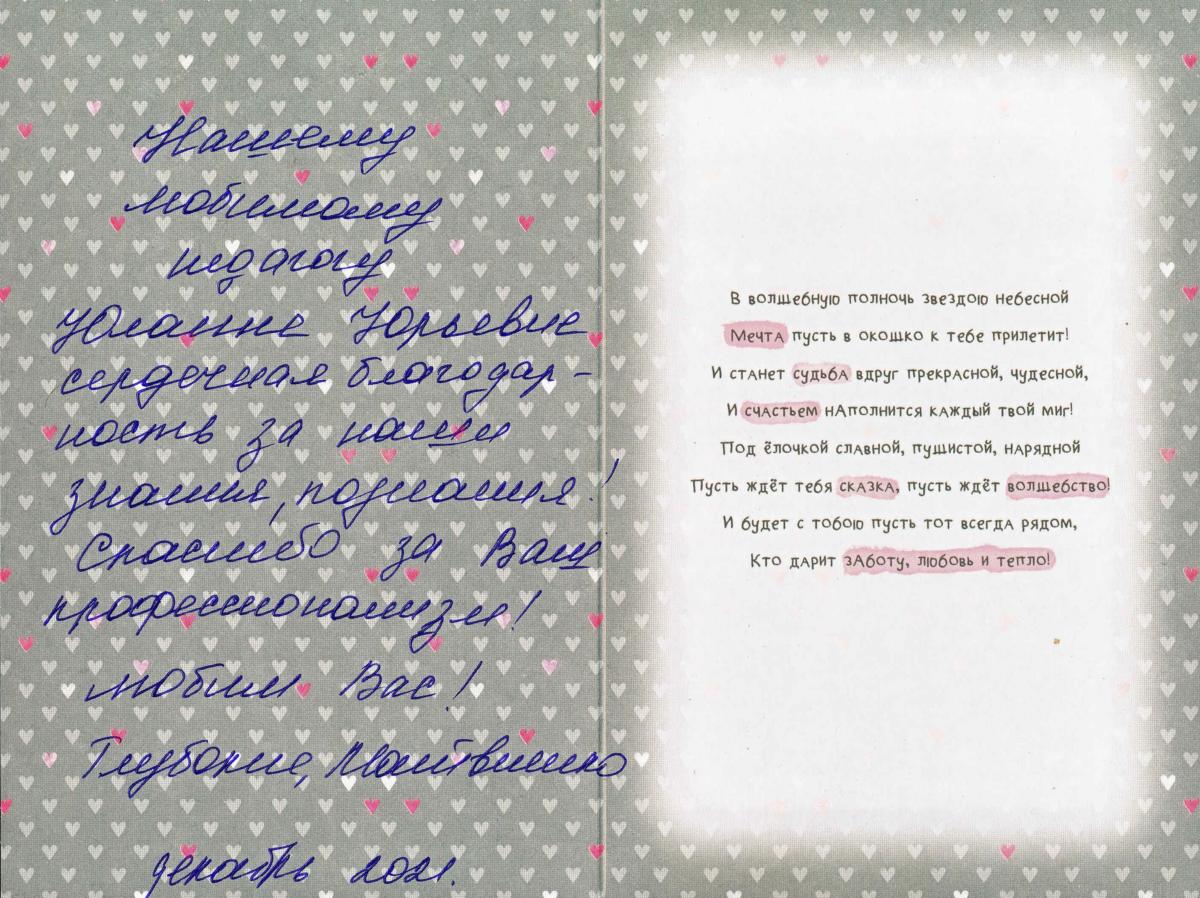 Нашему
любимому
педагогу
Юлианне Юрьевне
сердечная благодар-
ность за наши
знания, познания!
Спасибо за Ваш
профессионализм!
Любим Вас!
Глубокие, Матвиенко
декабрь 2021.
В волшебную полночь звездою небесной
Мечта пусть в окошко к тебе прилетит!
И станет судьба вдруг прекрасной, чудесной,
И счастьем наполнится каждый твой миг!
Под ёлочкой славной, пушистой, нарядной
Пусть ждёт тебя сказка, пусть ждёт волшебство!
И будет с тобою пусть тот всегда рядом,
Кто дарит заботу, любовь и тепло!